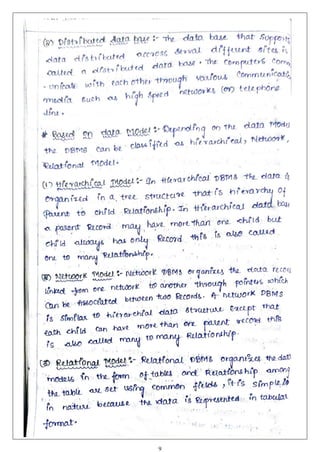 (B) Distributed data base :- The data base that support
data distributed accross serval different sites is
called a distributed data base. The computers com
- unicate with each other through various communicati
media such as high speed networks (or) telephone
line.
* Based on data Model :- Depending on the data Model
the DBMS can be classified as hierarchical, Network,
Relational Model.
(1) Hierarchical Model :- In Hierarchical DBMS the data is
organized in a tree structure that is hierarchy of
parent to child Relationship. In Hierarchical data bas
a parent Record may have more than one child but
child always has only Record this is also called
one to many Relationship.
Network Model :- Network DBMS organizes the data recor
linked from one network to another through pointers which
can be Associated between two Records. A network DBMS
is similar to hierorchial data structure Except that
each child can have more than one parent record this
is also called many to many Relationship.
(3) Relational Model :- Relational DBMS organizes the data
models in the form of tables and Relationship among
the table are set using common fields, it is simple
in nature because the data is Represented in tabular
format.
9